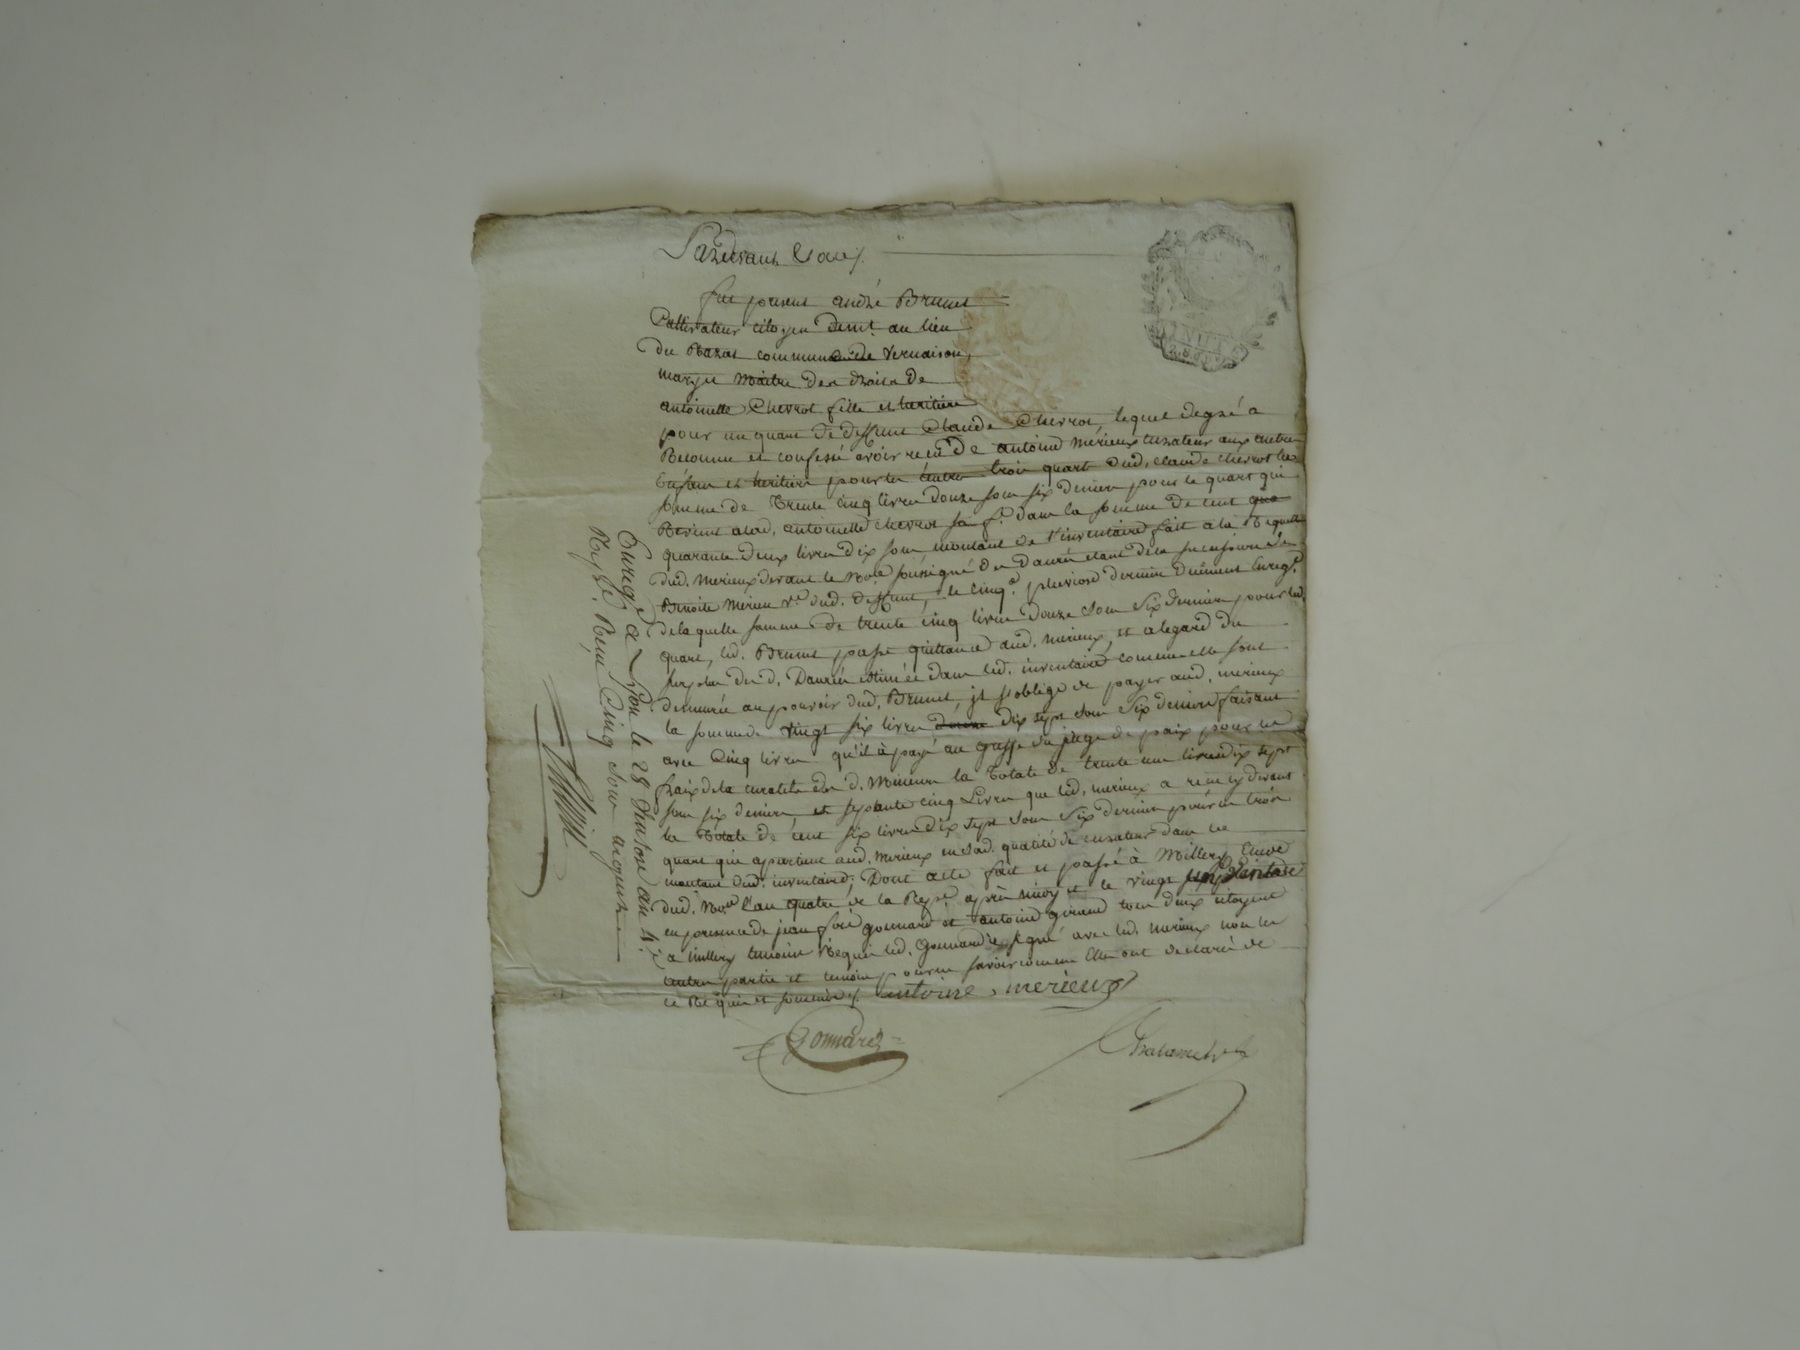 Pardevant &c
fut present andré Brunet
Cultivateur citoyen demt. au lieu
du commune de Vernaison,
mary et Maitre des droits de
antoinette Chevrot fille et heritiere
pour un quart de deffunt Claude Chevrot, lequel degré a
Reconnu et confessé avoir recu de antoine Mérieux curateur aux autres
Enfans et heritiers pour les autres trois quarts dud. claude chevrot la
somme de Trente cinq livres douze sous six deniers pour le quart qui
Revient alad. antoinette chevrot sa fe. dans la somme de cent
quarante deux livres dix sous, montant de l'inventaire fait a la Requette
dud. Merieux devant le Nore soussigné des Danrés etant de la succession de
Benoite Merieu ve. dud. deffunt, le cinq pluviose dernier duement Enregé.
de laquelle somme de trente cinq livres douze sous six deniers pour led.
quart, led. Brunet passe quittance aud. Merieux, et a legard du
surplus des d. Danrés estimées dans led. inventaire comme elle sont
demurée au pouvoir dud. Brunet, il s'oblige de payer aud. merieux
la somme de vingt six livres dix sept sous six deniers faisant
avec Cinq livres qu'il à payé au greffe du juge de paix pour les
fraix de la curatelle des d. Mineurs la totale de trente une livres dix sept
sous six deniers, et septante cinq Livres que led. merieux a recu cy devant
la totale de cent six livres dix sept sous six deniers pour les trois
quart qui apartient aud. merieux en sad. qualité de curateur dans le
montant dud. inventaire; Dont acte fait et passé à Millery Etude
dud. Nore l'an quatre de la Repe. après midy et le vingt
en presence de jean gonnard et antoine giraud tous deux citoyens
a millery temoins Requis led. Gonnard a signé avec led. merieux non les
autres partie et temoin pour ne savoir comme ils ont declaré de
ce Requis et sommés /. antoine merieux
Gonnard
Enregé a Lyon le 28 an 4e
Reçu Cinq sous